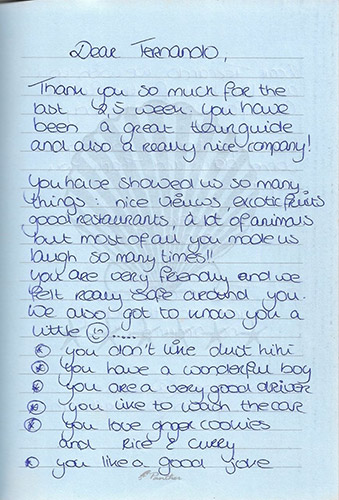 Dear Fernando,
Thank you so much for the
last 2,5 week. You have
been a great tourguide
and also a really nice company!
You have showed us so many
things: nice views, exotic fruits
good restaurants, a lot of animals
but most of all you made us
laugh so many times!!
You are very friendly and we
felt really safe around you.
We also got to know you a
little .....
you don't like dust hihi
you have a wonderful boy
you are a very good driver
you like to wash the car
you love ginger cookies
and Rice & Curry
you like a good joke
Panther